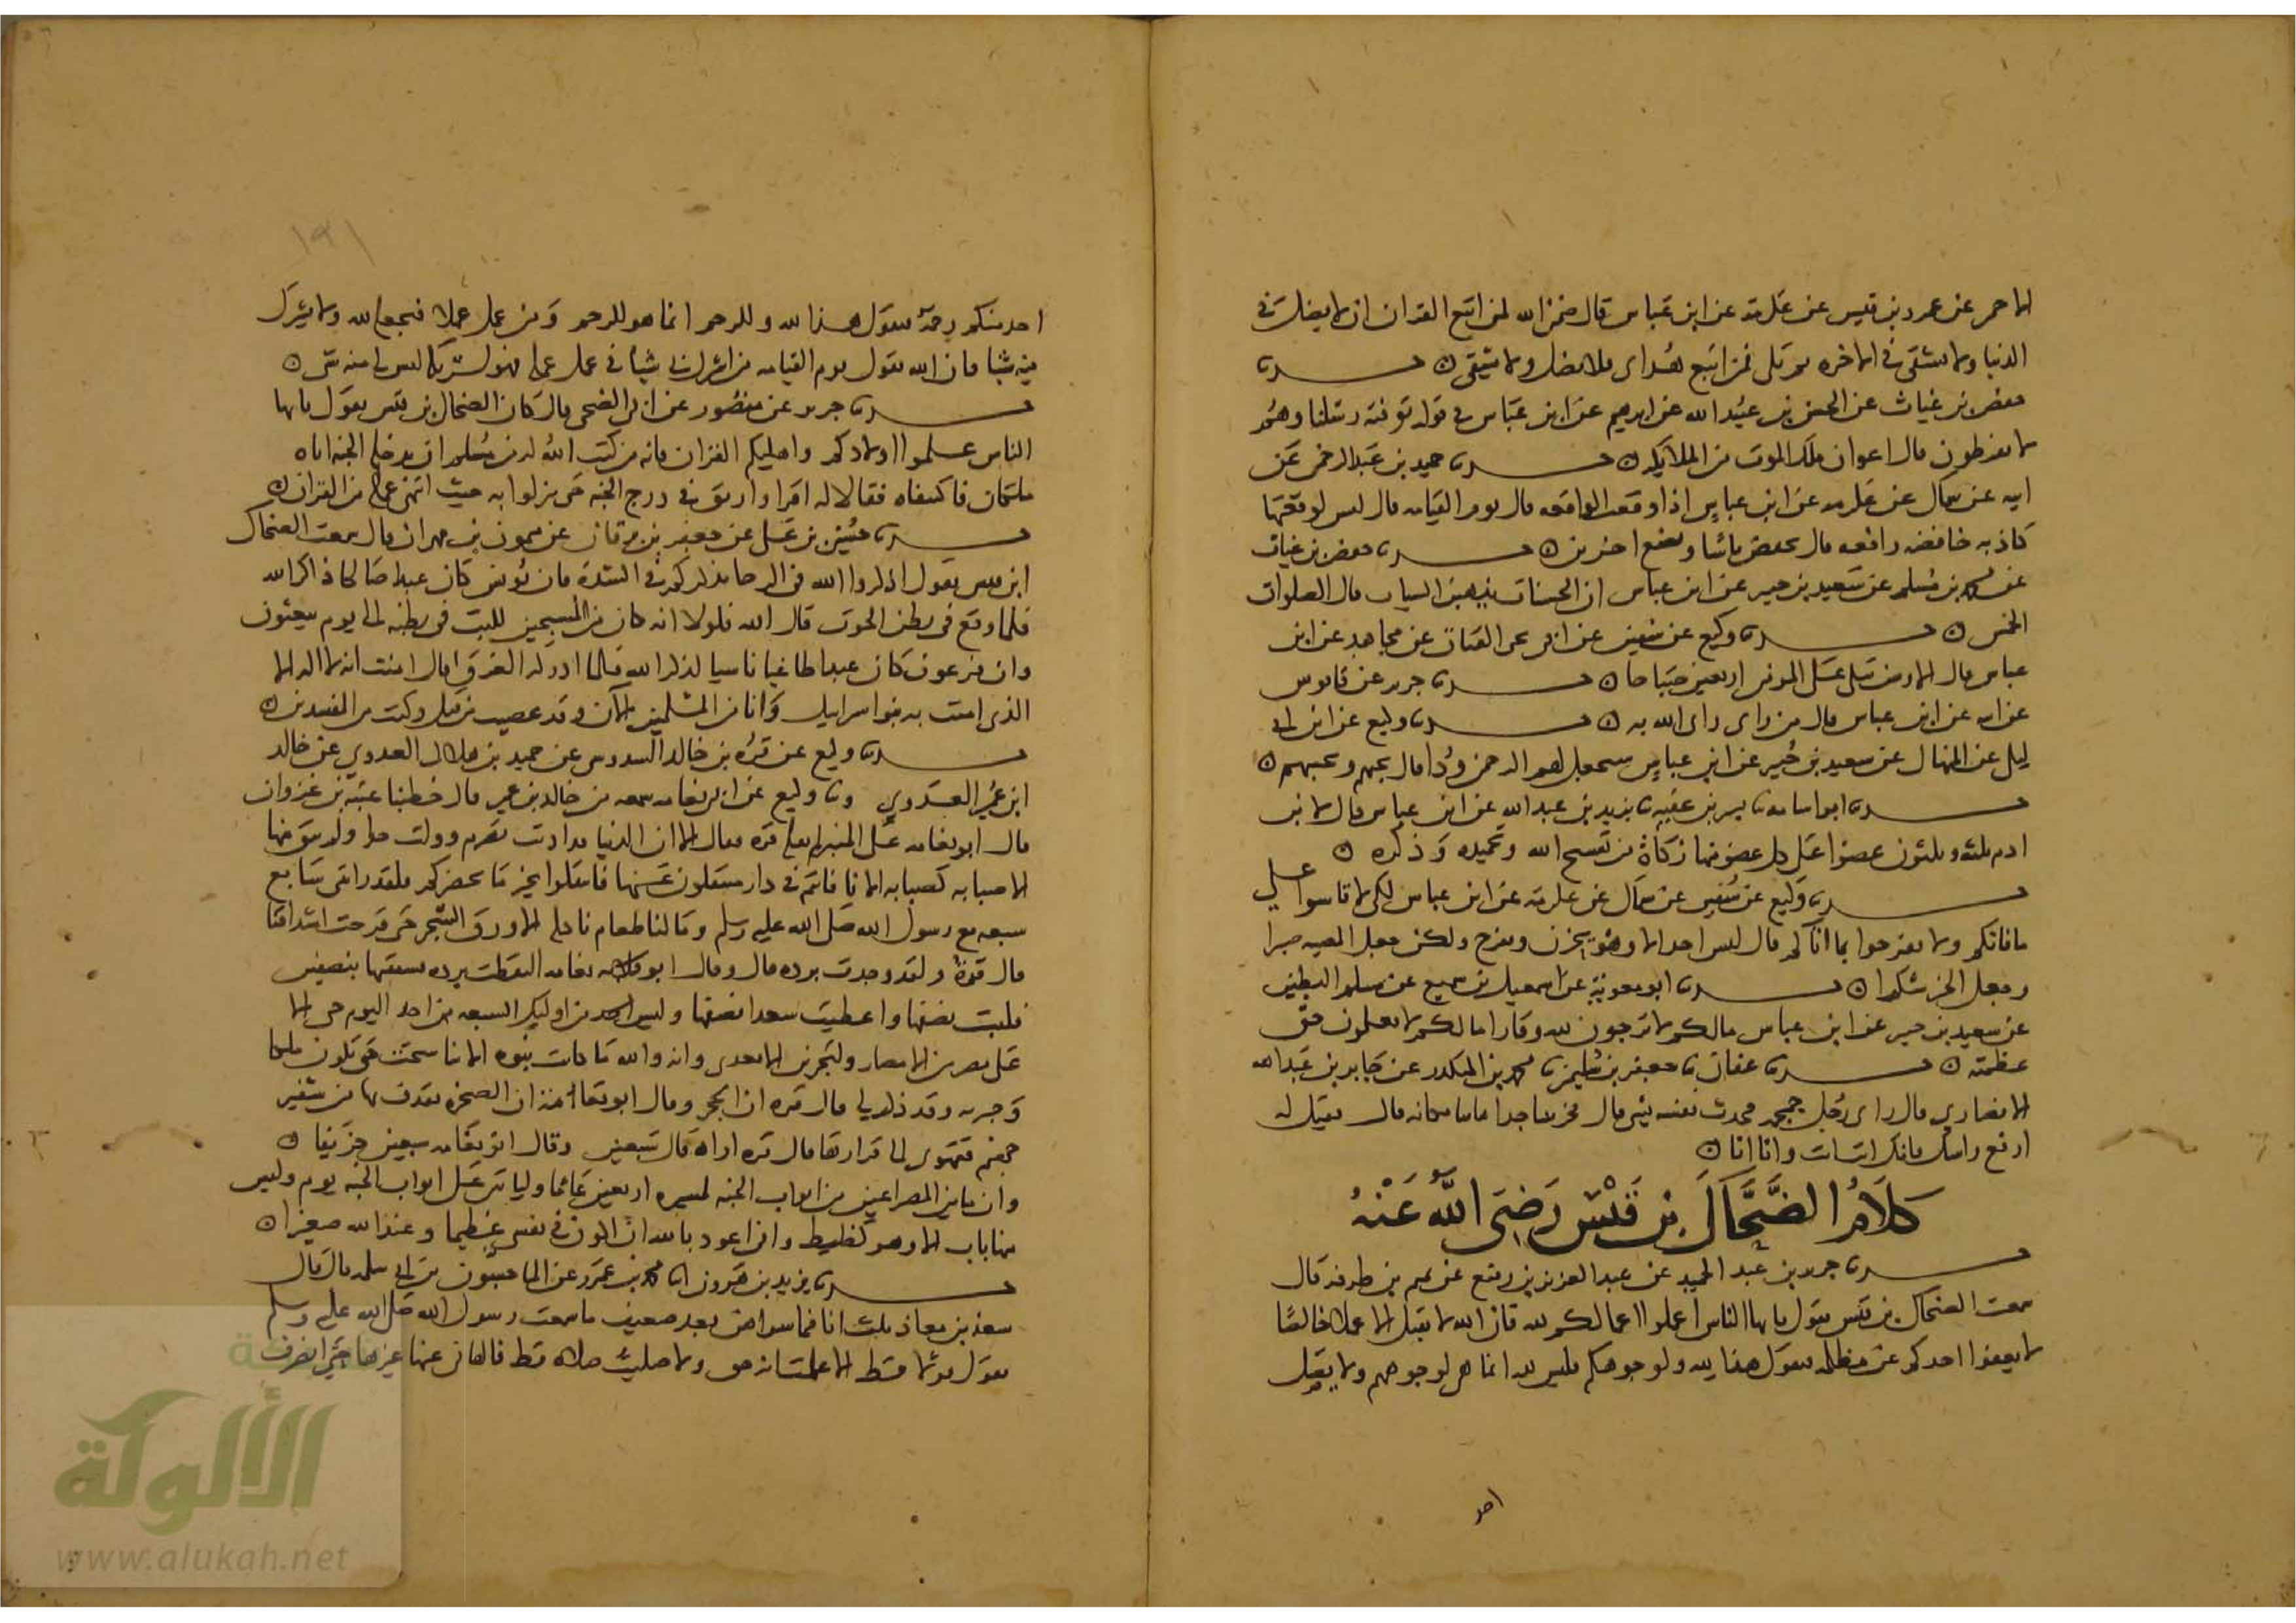 الاحمر عن عمرو بن قيس عن عكرمة عن ابن عباس قال ضمن الله لمن اتبع القران ان لا يضل في
الدنيا ولا يشقى في الاخره ثم تلى فمن اتبع هداى فلا يضل ولا يشقى
حفص بن غياث عن الحسن بن عبيد الله عن ابرهيم عن ابن عباس في قوله توفته رسلنا وهم
لا يفرطون قال اعوان ملك الموت من الملايكه حدثنا حميد بن عبد الرحمن عن
ابيه عن سماك عن عكرمه عن ابن عباس اذا وقعت الواقعه قال يوم القيامه قال ليس لوقعتها
كاذبه خافضه رافعه قال تخفض ناسا وترفع اخرين حدثنا حفص بن غياث
عن عبد الله بن مسلم عن سعيد بن جبير عن ابن عباس ان الحسنات يذهبن السيات قال الصلوات
الخمس حدثنا وكيع عن سفين عن ابى يحيى القتات عن مجاهد عن ابن
عباس قال الارض تبكى على المومن اربعين صباحا حدثنا جرير عن قابوس
عن ابيه عن ابن عباس قال من راى راى الله به حدثنا وكيع عن ابن ابى
ليلى عن المنهال عن سعيد بن جبير عن ابن عباس سيجعل لهم الرحمن ودا قال يحبهم ويحببهم
حدثنا ابو اسامه يزيد بن عبد الله عن ابن عباس قال لابن
ادم ثلثه وثلثون عضوا على كل عضو منها زكاة من تسبيح الله وتحميده وذكره
حدثنا وكيع عن سفين عن سماك عن عكرمة عن ابن عباس لكى لا تاسوا على
ما فاتكم ولا تفرحوا بما اتاكم قال ليس احد الا وهو يحزن ويفرح ولكن جعل المصيبه صبرا
وجعل الخير شكرا حدثنا ابو معوية عن اسمعيل بن سميع عن مسلم البطين
عن سعيد بن جبير عن ابن عباس مالكم لا ترجون لله وقارا مالكم لا تعلمون حق
عظمته حدثنا عفان نا جعفر بن سليمن نا محمد بن المنكدر عن جابر بن عبد الله
الانصاري قال راى رجل جمجمه فحدث نفسه بشى قال فخر ساجدا تايبا مكانه قال فقيل له
ارفع راسك فانك انت انت وانا انا
كلام الضحاك بن قيس رضي الله عنه
حدثنا جرير بن عبد الحميد عن عبد العزيز بن رفيع عن تميم بن طرفه قال
سمعت الضحاك بن قيس يقول يا يها الناس اعملوا اعمالكم لله فان الله لا يقبل الا عملا خالصا
لا يعفوا احدكم عن مظلمه فيقول هذا لله ولوجوهكم فليس لله انما هي لوجوههم ولا يصل
احد
١٩١
احد منكم رحمة فيقول هذا لله وللرحم انما هو للرحم ومن عمل عملا فيجعله لله ولا يشرك
فيه شيا فان الله يقول يوم القيامه من اشرك بى شيا في عمل عمله فهو لشريكه ليس لى منه شى
حدثنا جرير عن منصور عن ابى الضحى قال كان الضحاك بن قيس يقول يا يها
الناس علموا اولادكم واهليكم القران فانه من كتب الله له من مسلم ان يدخله الجنه اتاه
ملكان فاكتنفاه فقالا له اقرا وارتق في درج الجنه حتى ينزلوا به حيث انتهى عمله من القران
حدثنا حسين بن على عن جعفر بن برقان عن ميمون بن مهران قال سمعت الضحاك
ابن قيس يقول اذكروا الله في الرخا يذكركم في الشدة فان يونس كان عبدا صالحا ذاكرا لله
فلما وقع في بطن الحوت قال الله فلولا انه كان من المسبحين للبث في بطنه الى يوم يبعثون
وان فرعون كان عبدا طاغيا ناسيا لذكر الله فلما ادركه الغرق قال امنت انه لا اله الا
الذى امنت به بنوا اسرايل وانا من المسلمين الآن وقد عصيت قبل وكنت من المفسدين
حدثنا وكيع عن قرة بن خالد السدوسى عن حميد بن هلال العدوي عن خالد
ابن عمير العدوي ونا وكيع عن ابى نعامه سمعه من خالد بن عمير قال خطبنا عتبة بن غزوان
قال ابو نعامه على المنبر ولم يقله قره فقال الا ان الدنيا قد اذنت بصرم وولت حذا ولم يبق منها
الا صبابه كصبابه الانا فانتم في دار منتقلون عنها فانتقلوا بخير ما بحضرتكم ولقد رايتنى سابع
سبعه مع رسول الله صلى الله عليه وسلم ومالنا طعام ناكله الا ورق الشجر حتى قرحت اشداقنا
قال قرة ولقد وجدت برده قال وقال ابو نعامه التقطت برده فشققتها بنصفين
فلبست نصفها واعطيت سعدا نصفها وليس احد من اوليك السبعه من احد اليوم حى الا
على مصر من الامصار ولتجربن الامرا بعدى وانه والله ما كانت نبوه الا تناسخت حتى تكون ملكا
وجبريه وقد ذكر لى قال قره ان الحجر وقال ابو نعامه ان الصخره تقذف بها من شفير
جهنم فتهوى الى قرارها قال قره اراه قال سبعين وقال ابو نعامه سبعين خريفا
وان ما بين المصراعين من ابواب الجنه لمسيره اربعين عاما ولياتين على ابواب الجنه يوم وليس
منها باب الا وهو كظيظ وانى اعوذ بالله ان اكون في نفسى عظيما وعند الله صغيرا
حدثنا يزيد بن هرون انا محمد بن عمرو عن الماجشون بن ابى سلمه قال قال
سعد بن معاذ ثلث انا فيما سواهن بعد ضعيف ما سمعت رسول الله صلى الله عليه وسلم
يقول قولا قط الا علمت انه حق ولا صليت صلاه قط فالهانى عنها غيرها حتى انصرف
الألوكة
www.alukah.net